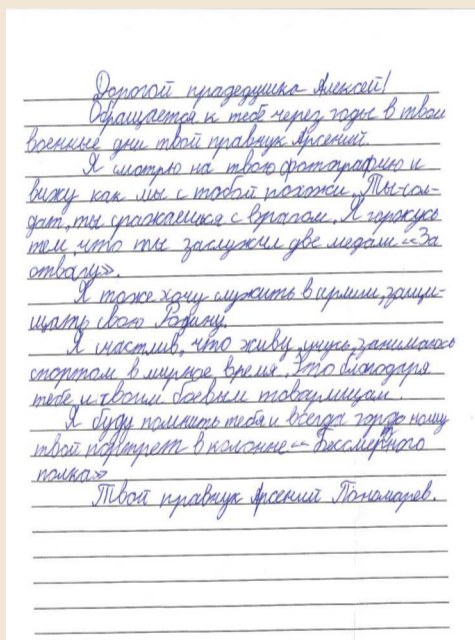 Дорогой прадедушка Алексей!
Обращается к тебе через годы в твои
военные дни твой правнук Арсений.
Я смотрю на твою фотографию и
вижу как мы с тобой похожи. Ты-сол-
дат, ты сражаешься с врагом. Я горжусь
тем, что ты заслужил две медали «За
отвагу».
Я тоже хочу служить в армии, защи-
щать свою Родину.
Я счастлив, что живу, учусь, занимаюсь
спортом в мирное время. Это благодаря
тебе и твоим боевым товарищам.
Я буду помнить тебя и всегда гордо ношу
твой портрет в колонне «Бессмертного
полка»
Твой правнук Арсений Пономарев.